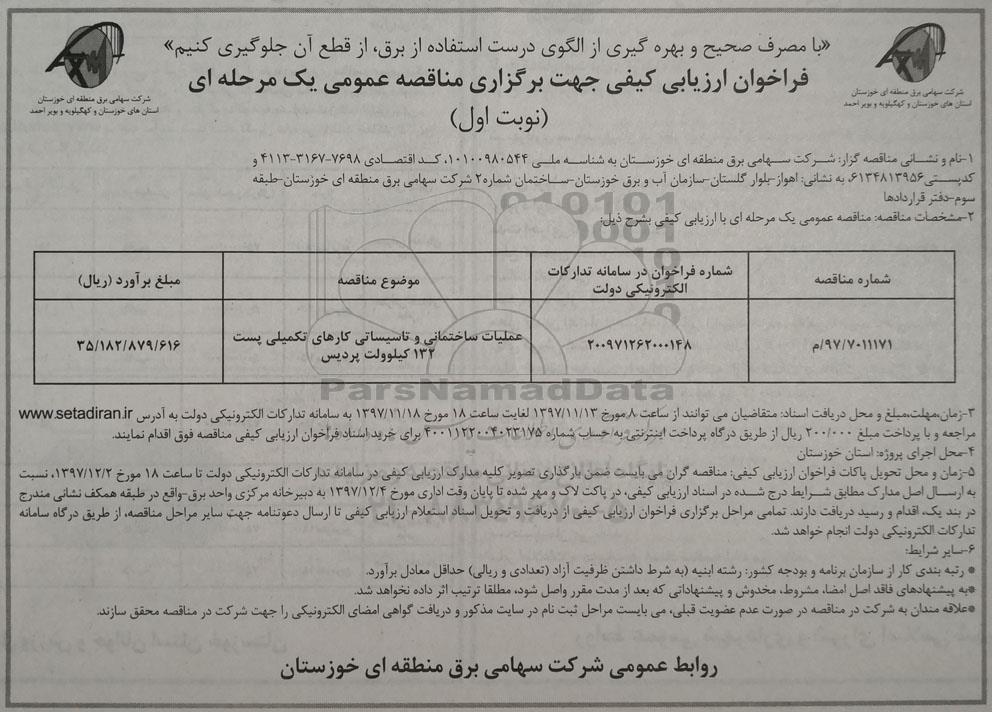 «با مصرف صحیح و بهره گیری از الگوی درست استفاده از برق، از قطع آن جلوگیری کنیم»
فراخوان ارزیابی کیفی جهت برگزاری مناقصه عمومی یک مرحله ای
(نوبت اول)
شرکت سهامی برق منطقه ای خوزستان
استان های خوزستان و کهگیلویه و بویر احمد
شرکت سهامی برق منطقه ای خوزستان
استان های خوزستان و کهگیلویه و بویر احمد
۱-نام و نشانی مناقصه گزار: شرکت سهامی برق منطقه ای خوزستان به شناسه ملی ۱۰۱۰۰۹۸۰۵۴۴، کد اقتصادی ۷۶۹۸-۳۱۶۷-۴۱۱۳ و
کدپستی۶۱۳۴۸۱۳۹۵۶، به نشانی: اهواز-بلوار گلستان-سازمان آب و برق خوزستان-ساختمان شماره۲ شرکت سهامی برق منطقه ای خوزستان-طبقه
سوم-دفتر قراردادها
۲-مشخصات مناقصه: مناقصه عمومی یک مرحله ای با ارزیابی کیفی بشرح ذیل:
شماره مناقصه
شماره فراخوان در سامانه تدارکات
الکترونیکی دولت
موضوع مناقصه
مبلغ برآورد (ریال)
۹۷/۷۰۱۱۱۷۱/م
۲۰۰۹۷۱۲۶۲۰۰۰۱۴۸
عملیات ساختمانی و تاسیساتی کارهای تکمیلی پست
۱۳۲ کیلوولت پردیس
۳۵/۱۸۲/۸۷۹/۶۱۶
ParsNamadData
۳-زمان،مهلت،مبلغ و محل دریافت اسناد: متقاضیان می توانند از ساعت ۸ مورخ ۱۳۹۷/۱۱/۱۳ لغایت ساعت ۱۸ مورخ ۱۳۹۷/۱۱/۱۸ به سامانه تدارکات الکترونیکی دولت به آدرس www.setadiran.ir
مراجعه و با پرداخت مبلغ ۲۰۰/۰۰۰ ریال از طریق درگاه پرداخت اینترنتی به حساب شماره ۴۰۰۱۱۲۲۰۰۴۰۲۳۱۷۵ برای خرید اسناد فراخوان ارزیابی کیفی مناقصه فوق اقدام نمایند.
۴-محل اجرای پروژه: استان خوزستان
۵-زمان و محل تحویل پاکات فراخوان ارزیابی کیفی: مناقصه گران می بایست ضمن بارگذاری تصویر کلیه مدارک ارزیابی کیفی در سامانه تدارکات الکترونیکی دولت تا ساعت ۱۸ مورخ ۱۳۹۷/۱۲/۲، نسبت
به ارسال اصل مدارک مطابق شرایط درج شده در اسناد ارزیابی کیفی، در پاکت لاک و مهر شده تا پایان وقت اداری مورخ ۱۳۹۷/۱۲/۴ به دبیرخانه مرکزی واحد برق-واقع در طبقه همکف نشانی مندرج
در بند یک، اقدام و رسید دریافت دارند. تمامی مراحل برگزاری فراخوان ارزیابی کیفی از دریافت و تحویل اسناد استعلام ارزیابی کیفی تا ارسال دعوتنامه جهت سایر مراحل مناقصه، از طریق درگاه سامانه
تدارکات الکترونیکی دولت انجام خواهد شد.
۶-سایر شرایط:
* رتبه بندی کار از سازمان برنامه و بودجه کشور: رشته ابنیه (به شرط داشتن ظرفیت آزاد (تعدادی و ریالی) حداقل معادل برآورد.
*به پیشنهادهای فاقد اصل امضا، مشروط، مخدوش و پیشنهاداتی که بعد از مدت مقرر واصل شود، مطلقا ترتیب اثر داده نخواهد شد.
*علاقه مندان به شرکت در مناقصه در صورت عدم عضویت قبلی، می بایست مراحل ثبت نام در سایت مذکور و دریافت گواهی امضای الکترونیکی را جهت شرکت در مناقصه محقق سازند.
روابط عمومی شرکت سهامی برق منطقه ای خوزستان